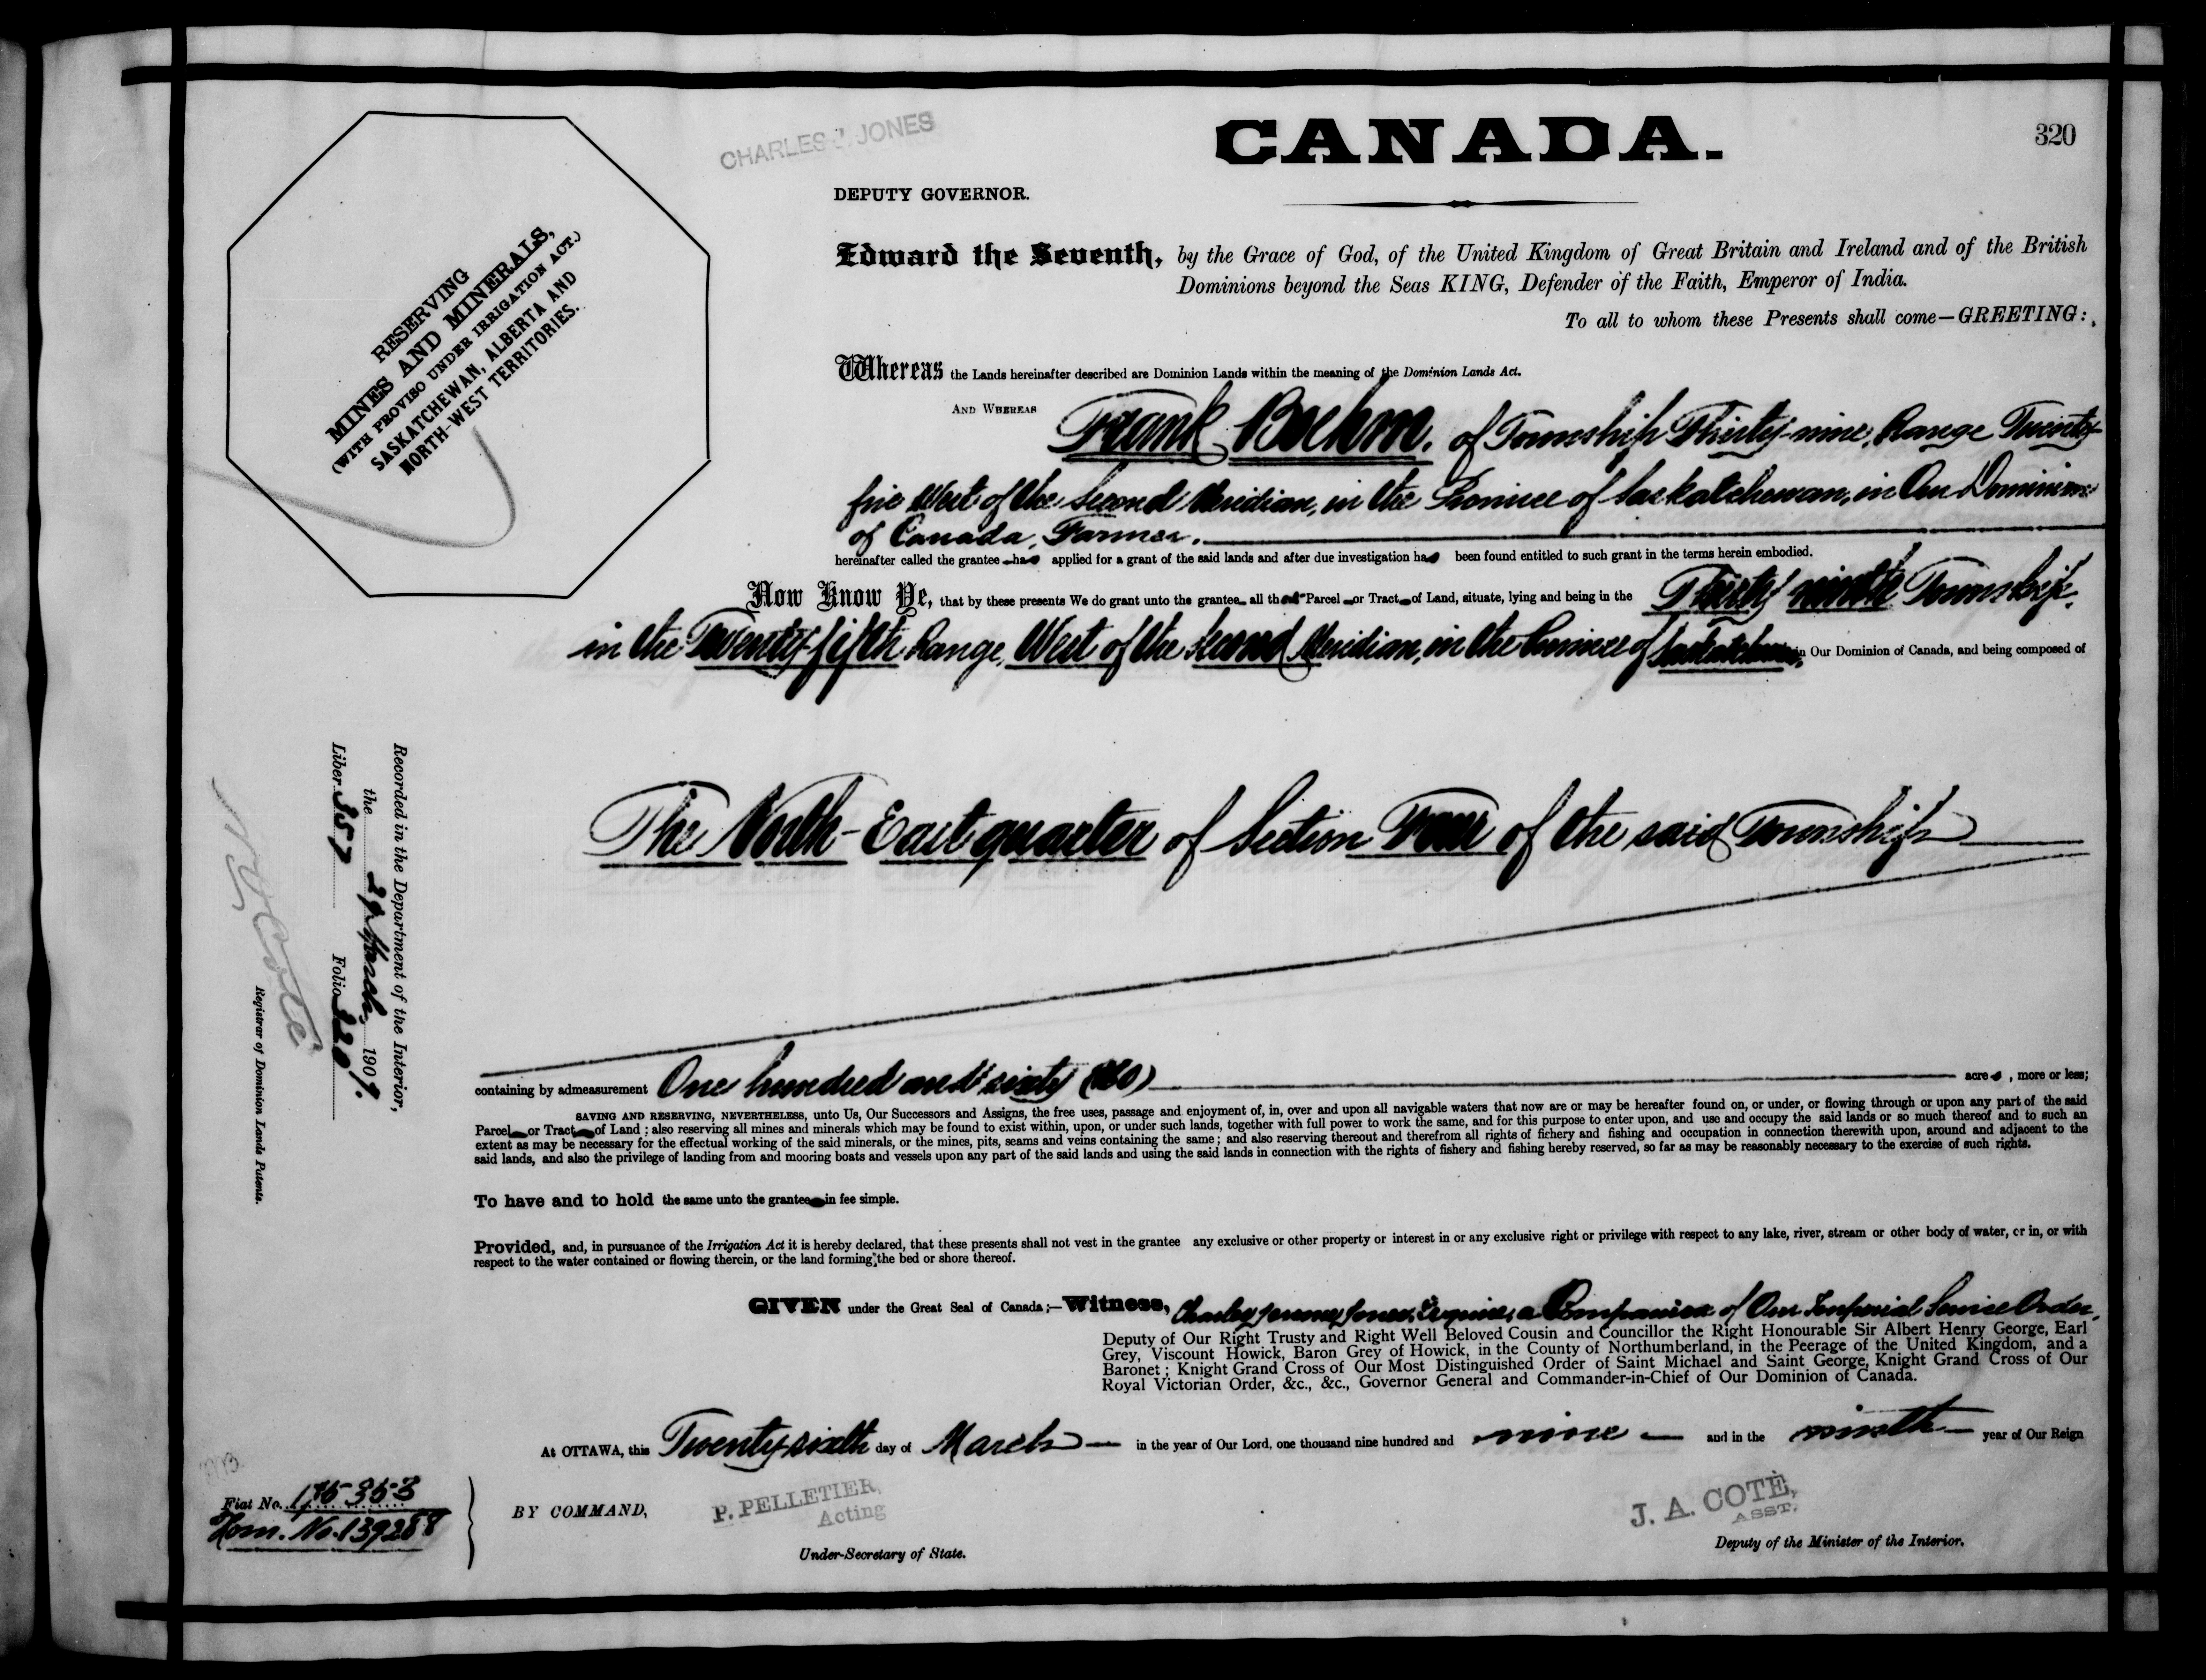 CHARLES J. JONES
CANADA.
320
DEPUTY GOVERNOR.
Edward the Seventh, by the Grace of God, of the United Kingdom of Great Britain and Ireland and of the British
Dominions beyond the Seas KING, Defender of the Faith, Emperor of India.
To all to whom these Presents shall come—GREETING:
RESERVING
MINES AND MINERALS,
(WITH PROVISO UNDER IRRIGATION ACT.)
SASKATCHEWAN, ALBERTA AND
NORTH-WEST TERRITORIES.
Whereas the Lands hereinafter described are Dominion Lands within the meaning of the Dominion Lands Act.
AND WHEREAS Frank Boehm, of Township Thirty-nine, Range Twenty-
five West of the Second Meridian, in the Province of Saskatchewan, in Our Dominion
of Canada, Farmer.
hereinafter called the grantee has applied for a grant of the said lands and after due investigation has been found entitled to such grant in the terms herein embodied.
Now Know Ye, that by these presents We do grant unto the grantee all that Parcel or Tract of Land, situate, lying and being in the Thirty ninth Township,
in the Twenty-fifth Range, West of the Second Meridian, in the Province of Saskatchewan, in Our Dominion of Canada, and being composed of
The North-East quarter of Section Four of the said Township
containing by admeasurement One hundred and sixty (160) acres, more or less;
SAVING AND RESERVING, NEVERTHELESS, unto Us, Our Successors and Assigns, the free uses, passage and enjoyment of, in, over and upon all navigable waters that now are or may be hereafter found on, or under, or flowing through or upon any part of the said
Parcel or Tract of Land; also reserving all mines and minerals which may be found to exist within, upon, or under such lands, together with full power to work the same, and for this purpose to enter upon, and use and occupy the said lands or so much thereof and to such an
extent as may be necessary for the effectual working of the said minerals, or the mines, pits, seams and veins containing the same; and also reserving thereout and therefrom all rights of fishery and fishing and occupation in connection therewith upon, around and adjacent to the
said lands, and also the privilege of landing from and mooring boats and vessels upon any part of the said lands and using the said lands in connection with the rights of fishery and fishing hereby reserved, so far as may be reasonably necessary to the exercise of such rights.
To have and to hold the same unto the grantee in fee simple.
Provided, and, in pursuance of the Irrigation Act it is hereby declared, that these presents shall not vest in the grantee any exclusive or other property or interest in or any exclusive right or privilege with respect to any lake, river, stream or other body of water, or in, or with
respect to the water contained or flowing therein, or the land forming the bed or shore thereof.
GIVEN under the Great Seal of Canada;—Witness, Charles Jones, Esquire, a Companion of Our Imperial Service Order,
Deputy of Our Right Trusty and Right Well Beloved Cousin and Councillor the Right Honourable Sir Albert Henry George, Earl
Grey, Viscount Howick, Baron Grey of Howick, in the County of Northumberland, in the Peerage of the United Kingdom, and a
Baronet; Knight Grand Cross of Our Most Distinguished Order of Saint Michael and Saint George, Knight Grand Cross of Our
Royal Victorian Order, &c., &c., Governor General and Commander-in-Chief of Our Dominion of Canada.
At OTTAWA, this Twenty-sixth day of March in the year of Our Lord, one thousand nine hundred and nine and in the ninth year of Our Reign
BY COMMAND,
P. PELLETIER,
Acting
Under-Secretary of State.
J. A. COTÉ,
ASST.
Deputy of the Minister of the Interior.
Recorded in the Department of the Interior,
the 29 March, 1909.
Liber 357 Folio 320
N. O. Coté
Registrar of Dominion Lands Patents.
Fiat No. 175353
Hom. No. 139288